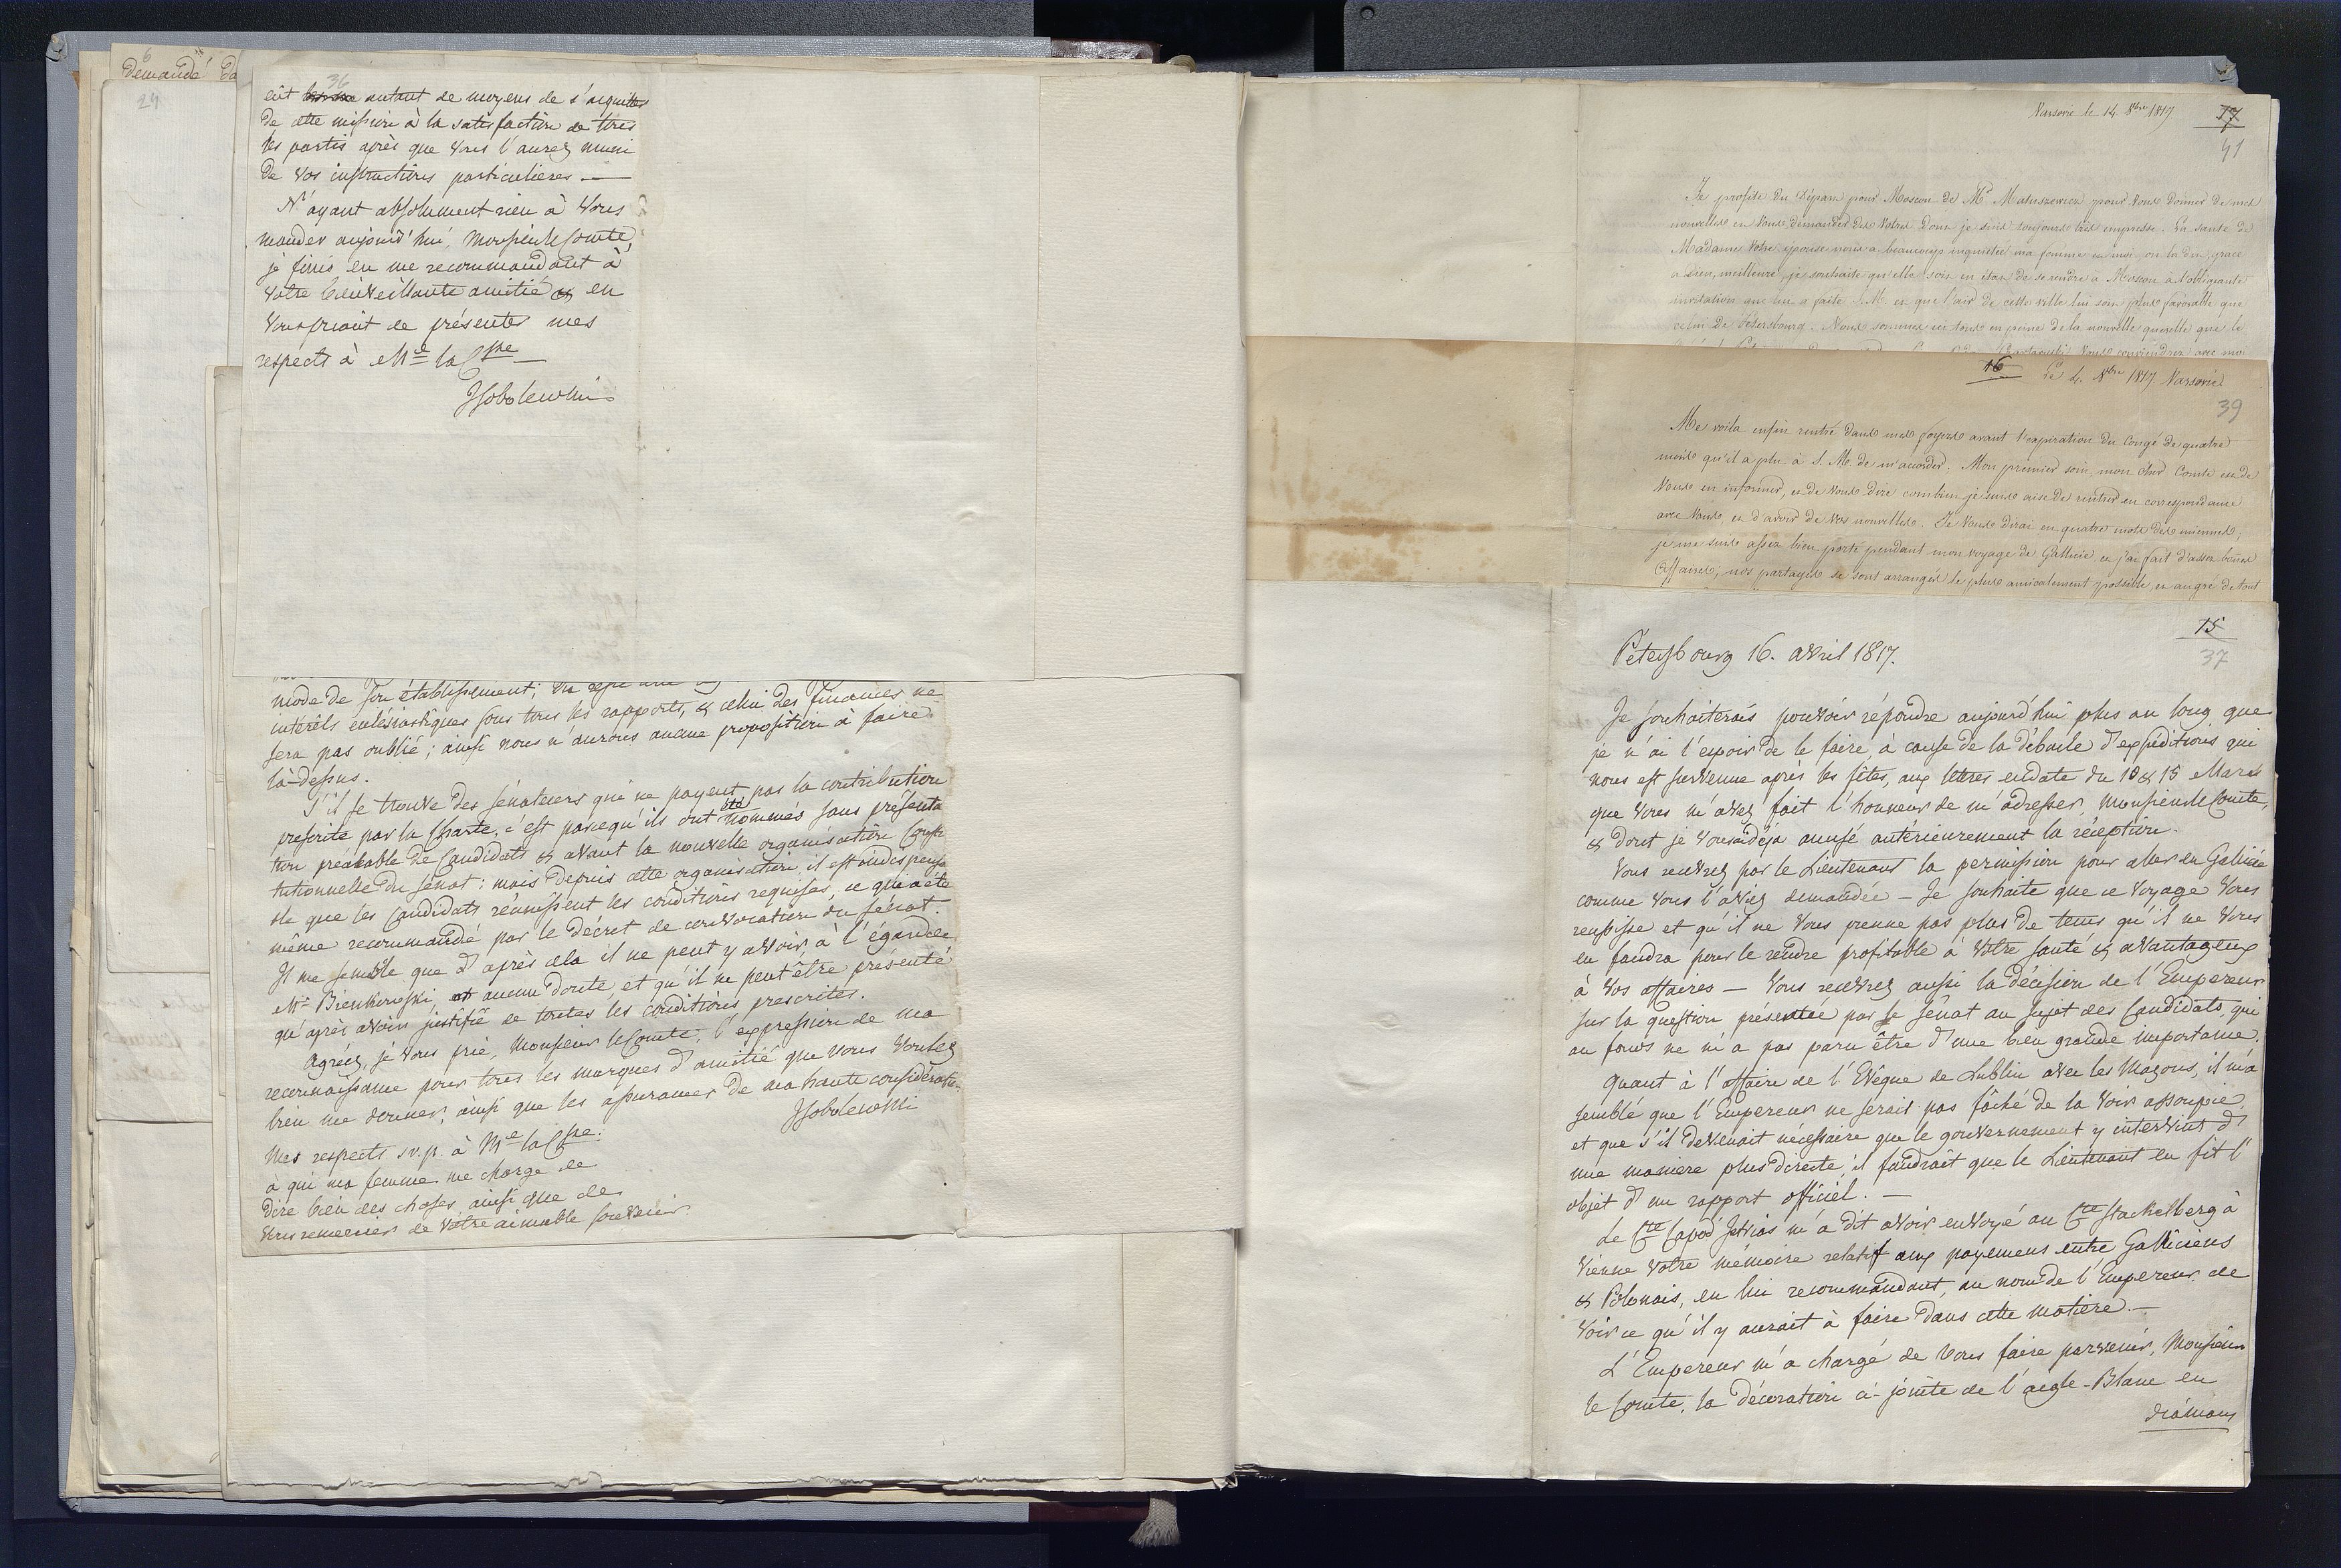 6
demandé da
24
36
eût autant de moyens de s'acquitter
de cette mission à la satisfaction de tous
les partis après que Vous l'aurez muni
de Vos instructions particulieres. —
N'ayant absolument rien à Vous
mander aujourd'hui, Monsieur le Comte,
je finis en me recommandant à
Votre bienveillante amitié & en
Vous priant de présenter mes
respects à Me la Csse —
JSobolewski
mode de son établissement;
intérêts eclésiastiques sous tous les rapports, & celui des finances ne
sera pas oublié; ainsi nous n'aurons aucune proposition à faire
là-dessus.
S'il se trouve des sénateurs qui ne payent pas la contribution
prescrite par la Charte, c'est parcequ'ils ont été nommés sans présenta
tion préalable de Candidats & avant la nouvelle organisation Consti
tutionnelle du sénat: mais depuis cette organisation, il est indispensa
ble que les Candidats réunissent les conditions requises, ce qui a été
même recommandé par le décret de convocation du sénat.
Il me semble que d'après cela il ne peut y avoir à l'égard de
Mr Bienkowski, aucun doute, et qu'il ne peut être présenté
qu'après avoir justifié de toutes les conditions prescrites.
Agréez, je Vous prie, Monsieur le Comte, l'expression de ma
reconnaissance pour tous les marques d'amitié que Vous Voulez
bien me donner, ainsi que les assurances de ma haute considération.
JSobolewski
Mes respects s.v.p. à Me la Csse:
à qui ma femme me charge de
dire bien des choses, ainsi que de
Vous remercier de Votre aimable souvenir.
Varsovie le 14 8bre 1817.
17
41
Je profite du Départ pour Moscou de Mr Matuszewicz pour Vous donner de mes
nouvelles et Vous demander des Votres dont je suis toujours très empressé. La santé de
Madame Votre epouse nous a beaucoup inquiétée ma femme et moi, on la dit, grace
a Dieu, meilleure, je souhaite qu'elle soit en état de se rendre a Moscou à l'obligeante
invitation que lui a faite S.M. et que l'air de cette ville lui soit plus favorable que
celui de Petersbourg. Nous sommes ici tous en peine de la nouvelle querelle que le
Vous conviendrez avec moi
16
Le 4. 8bre 1817. Varsovie
39
Me voila enfin rentré dans mes foyers avant l'expiration du Congé de quatre
mois qu'il a plu à S. M. de m'accorder. Mon premier soin, mon cher Comte est de
Vous en informer, et de Vous dire combien je suis aise de rentrer en correspondance
avec Vous et d'avoir de Vos nouvelles. Je Vous dirai en quatre mots des miennes;
je me suis assez bien porté pendant mon voyage de Gallicie et j'ai fait d'assez bonnes
affaires; nos partages se sont arrangés le plus amicalement possible, et au gré de tout
15
37
Pétersbourg 16. avril 1817.
Je souhaiterais pouvoir répondre aujourd'hui plus au long que
je n'ai l'espoir de le faire, à cause de la débacle d'expéditions qui
nous est survenue après les fêtes, aux lettres en date du 10 & 15 Mars
que Vous m'avez fait l'honneur de m'adresser, Monsieur le Comte,
& dont je Vous ai déja accusé antérieurement la réception.
Vous recevrez par le Lieutenant la permission pour aller en Gallicie
comme Vous l'aviez demandée — Je souhaite que ce Voyage Vous
reussisse et qu'il ne Vous prenne pas plus de tems qu'il ne Vous
en faudra pour le rendre profitable à Votre santé & avantageux
à Vos affaires — Vous recevrez aussi la décision de l'Empereur
sur la question présentée par le sénat au sujet des Candidats, qui
au fonds ne m'a pas paru être d'une bien grande importance.
Quant à l'affaire de l'Evêque de Lublin avec les Maçons, il m'a
semblé que l'Empereur ne serait pas fâché de la Voir assoupie,
et que s'il devenait nécessaire que le gouvernement y intervint d'
une maniere plus directe, il faudrait que le Lieutenant en fit l'
objet d'un rapport officiel. —
Le Cte Capod'Istrias m'a dit avoir envoyé au Cte Stackelberg à
Vienne Votre mémoire relatif aux payemens entre Galliciens
& Polonais, en lui recommandant, au nom de l'Empereur de
Voir ce qu'il y aurait à faire dans cette matière. —
L'Empereur m'a chargé de Vous faire parvenir, Monsieur
le Comte, la décoration ci-jointe de l'aigle-Blanc en
diamans